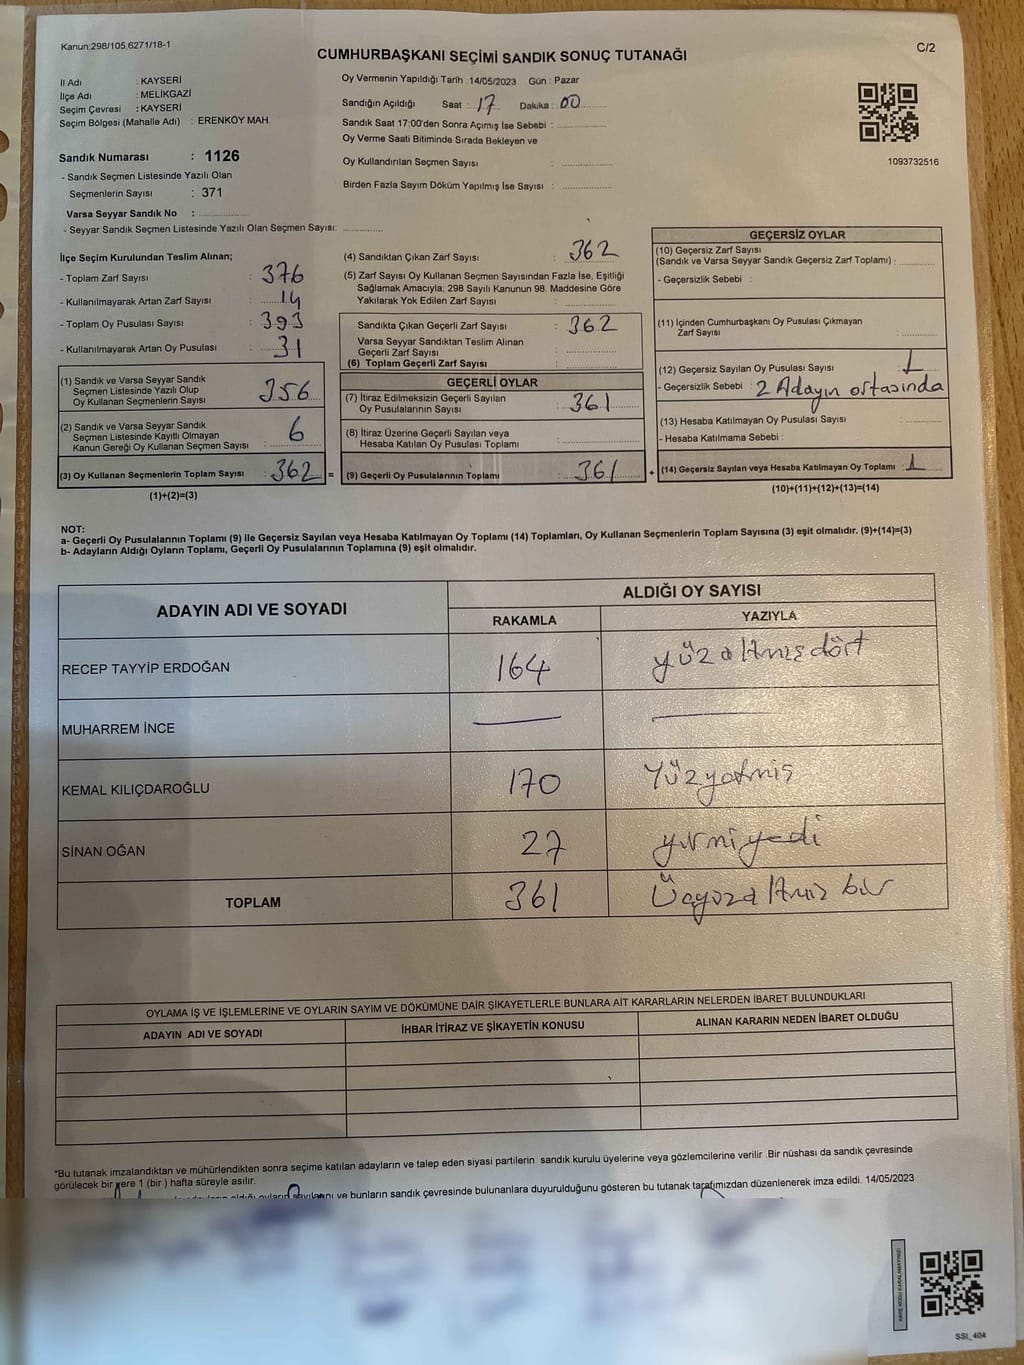 Kanun;298/105,6271/18-1
C/2
CUMHURBAŞKANI SEÇİMİ SANDIK SONUÇ TUTANAĞI
İl Adı : KAYSERİ
İlçe Adı : MELİKGAZİ
Seçim Çevresi : KAYSERİ
Seçim Bölgesi (Mahalle Adı) : ERENKÖY MAH.
Sandık Numarası : 1126
- Sandık Seçmen Listesinde Yazılı Olan
Seçmenlerin Sayısı : 371
Varsa Seyyar Sandık No :
- Seyyar Sandık Seçmen Listesinde Yazılı Olan Seçmen Sayısı:
Oy Vermenin Yapıldığı Tarih 14/05/2023 Gün : Pazar
Sandığın Açıldığı Saat : 17 Dakika : 00
Sandık Saat 17:00'den Sonra Açımış İse Sebebi :
Oy Verme Saati Bitiminde Sırada Bekleyen ve
Oy Kullandırılan Seçmen Sayısı :
Birden Fazla Sayım Döküm Yapılmış İse Sayısı :
1093732516
İlçe Seçim Kurulundan Teslim Alınan;
- Toplam Zarf Sayısı : 376
- Kullanılmayarak Artan Zarf Sayısı : 14
- Toplam Oy Pusulası Sayısı : 393
- Kullanılmayarak Artan Oy Pusulası : 31
(1) Sandık ve Varsa Seyyar Sandık
Seçmen Listesinde Yazılı Olup
Oy Kullanan Seçmenlerin Sayısı : 356
(2) Sandık ve Varsa Seyyar Sandık
Seçmen Listesinde Kayıtlı Olmayan
Kanun Gereği Oy Kullanan Seçmen Sayısı : 6
(3) Oy Kullanan Seçmenlerin Toplam Sayısı : 362 =
(1)+(2)=(3)
(4) Sandıktan Çıkan Zarf Sayısı : 362
(5) Zarf Sayısı Oy Kullanan Seçmen Sayısından Fazla İse, Eşitliği
Sağlamak Amacıyla; 298 Sayılı Kanunun 98. Maddesine Göre
Yakılarak Yok Edilen Zarf Sayısı :
Sandıkta Çıkan Geçerli Zarf Sayısı : 362
Varsa Seyyar Sandıktan Teslim Alınan
Geçerli Zarf Sayısı :
(6) Toplam Geçerli Zarf Sayısı :
GEÇERLİ OYLAR
(7) İtiraz Edilmeksizin Geçerli Sayılan
Oy Pusulalarının Sayısı : 361
(8) İtiraz Üzerine Geçerli Sayılan veya
Hesaba Katılan Oy Pusulası Toplamı :
(9) Geçerli Oy Pusulalarının Toplamı : 361 +
GEÇERSİZ OYLAR
(10) Geçersiz Zarf Sayısı
(Sandık ve Varsa Seyyar Sandık Geçersiz Zarf Toplamı) :
- Geçersizlik Sebebi :
(11) İçinden Cumhurbaşkanı Oy Pusulası Çıkmayan
Zarf Sayısı :
(12) Geçersiz Sayılan Oy Pusulası Sayısı : 1
- Geçersizlik Sebebi : 2 Adayın ortasında
(13) Hesaba Katılmayan Oy Pusulası Sayısı :
- Hesaba Katılmama Sebebi :
(14) Geçersiz Sayılan veya Hesaba Katılmayan Oy Toplamı : 1
(10)+(11)+(12)+(13)=(14)
NOT:
a- Geçerli Oy Pusulalarının Toplamı (9) ile Geçersiz Sayılan veya Hesaba Katılmayan Oy Toplamı (14) Toplamları, Oy Kullanan Seçmenlerin Toplam Sayısına (3) eşit olmalıdır. (9)+(14)=(3)
b- Adayların Aldığı Oyların Toplamı, Geçerli Oy Pusulalarının Toplamına (9) eşit olmalıdır.
ADAYIN ADI VE SOYADI
ALDIĞI OY SAYISI
RAKAMLA YAZIYLA
RECEP TAYYİP ERDOĞAN 164 yüzaltmışdört
MUHARREM İNCE — —
KEMAL KILIÇDAROĞLU 170 Yüzyetmiş
SİNAN OĞAN 27 yirmiyedi
TOPLAM 361 Üçyüzaltmış bir
OYLAMA İŞ VE İŞLEMLERİNE VE OYLARIN SAYIM VE DÖKÜMÜNE DAİR ŞİKAYETLERLE BUNLARA AİT KARARLARIN NELERDEN İBARET BULUNDUKLARI
ADAYIN ADI VE SOYADI İHBAR İTİRAZ VE ŞİKAYETİN KONUSU ALINAN KARARIN NEDEN İBARET OLDUĞU
*Bu tutanak imzalandıktan ve mühürlendikten sonra seçime katılan adayların ve talep eden siyasi partilerin sandık kurulu üyelerine veya gözlemcilerine verilir .Bir nüshası da sandık çevresinde
görülecek bir yere 1 (bir ) hafta süreyle asılır.
oyların sayılmasını ve bunların sandık çevresinde bulunanlara duyurulduğunu gösteren bu tutanak tarafımızdan düzenlenerek imza edildi. 14/05/2023
SSI_404